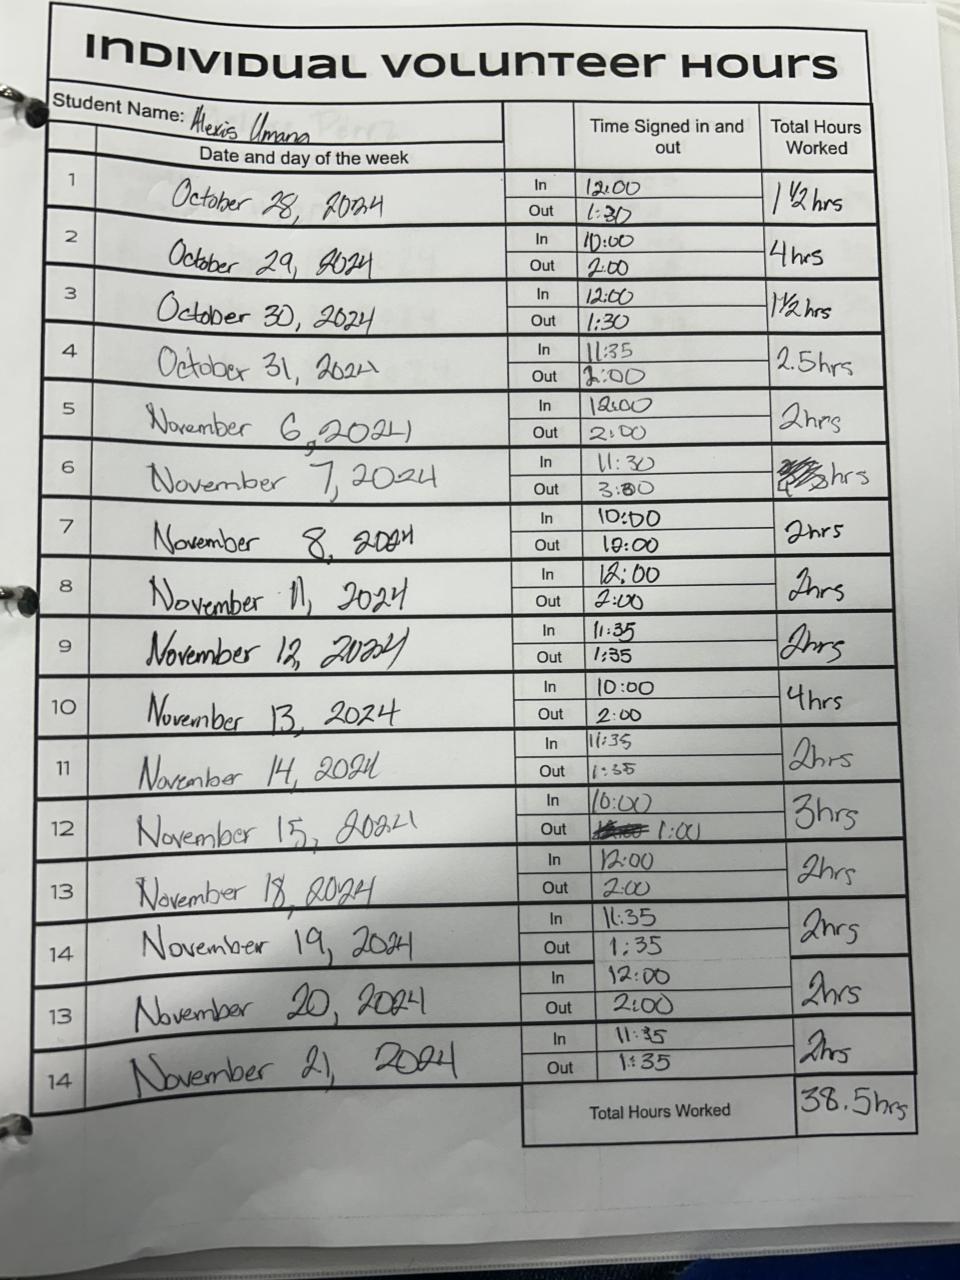 INDIVIDUAL VOLUNTEER HOURS
Student Name: Alexis Umana
Date and day of the week
Time Signed in and out
Total Hours Worked
1 October 28, 2024 In 12:00 Out 1:30 1 1/2 hrs
2 October 29, 2024 In 10:00 Out 2:00 4hrs
3 October 30, 2024 In 12:00 Out 1:30 1 1/2 hrs
4 October 31, 2024 In 11:35 Out 2:00 2.5hrs
5 November 6, 2024 In 12:00 Out 2:00 2hrs
6 November 7, 2024 In 11:30 Out 3:00 hrs
7 November 8, 2024 In 10:00 Out 12:00 2hrs
8 November 11, 2024 In 12:00 Out 2:00 2hrs
9 November 12, 2024 In 11:35 Out 1:35 2hrs
10 November 13, 2024 In 10:00 Out 2:00 4hrs
11 November 14, 2024 In 11:35 Out 1:35 2hrs
12 November 15, 2024 In 10:00 Out 1:00 3hrs
13 November 18, 2024 In 12:00 Out 2:00 2hrs
14 November 19, 2024 In 11:35 Out 1:35 2hrs
13 November 20, 2024 In 12:00 Out 2:00 2hrs
14 November 21, 2024 In 11:35 Out 1:35 2hrs
Total Hours Worked 38.5hrs